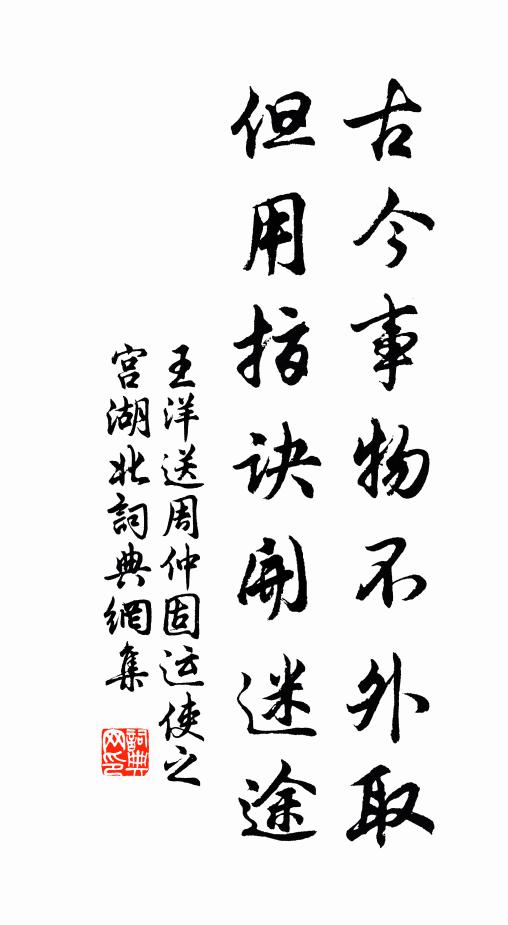 古今事物不外取
但用指诀開迷途
王洋送周仲固运使之
宫湖北詞典網集
詞典
网印